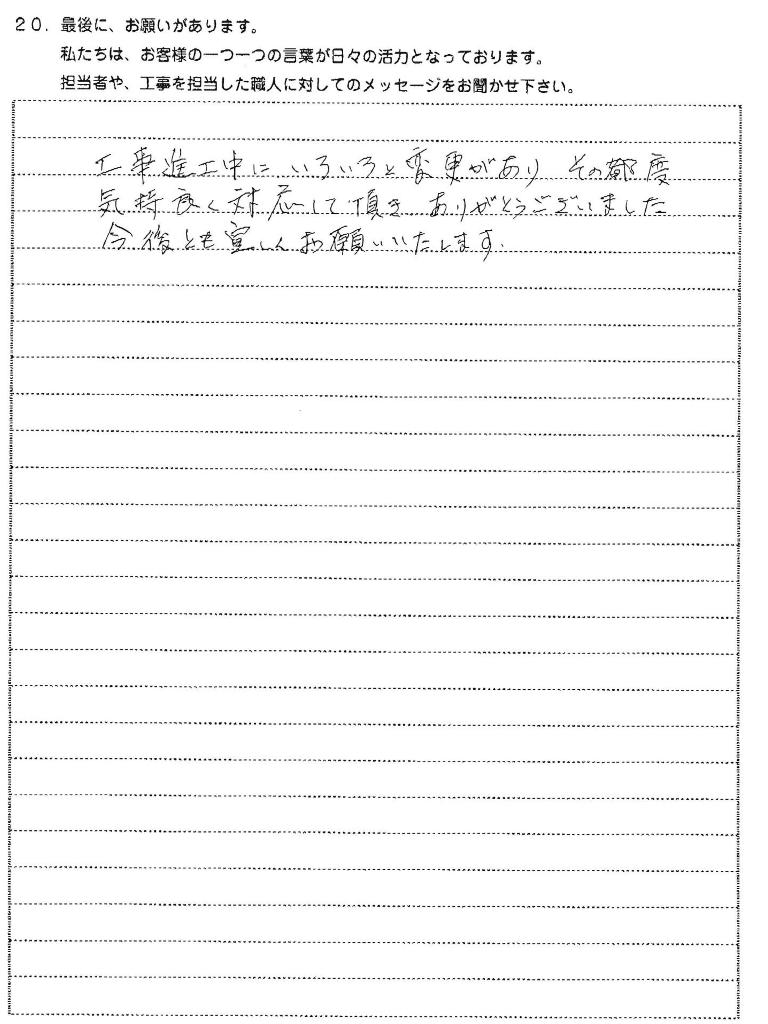 20. 最後に、お願いがあります。
私たちは、お客様の一つ一つの言葉が日々の活力となっております。
担当者や、工事を担当した職人に対してのメッセージをお聞かせ下さい。
工事進工中に いろいろと変更があり その都度
気持良く対応して頂き ありがとうございました
今後とも宜しくお願いいたします.